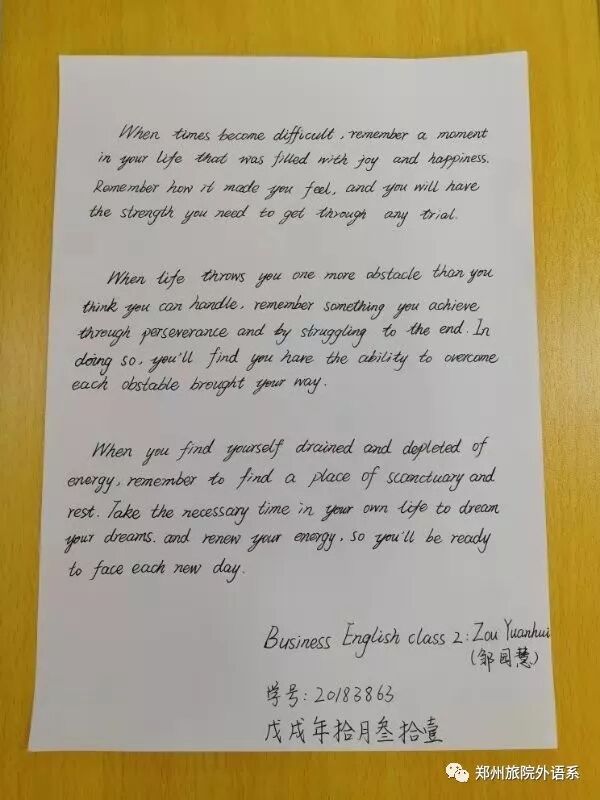 When times become difficult, remember a moment
in your life that was filled with joy and happiness.
Remember how it made you feel, and you will have
the strength you need to get through any trial.
When life throws you one more obstacle than you
think you can handle, remember something you achieve
through perseverance and by struggling to the end. In
doing so, you'll find you have the ability to overcome
each obstable brought your way.
When you find yourself drained and depleted of
energy, remember to find a place of scanctuary and
rest. Take the necessary time in your own life to dream
your dreams. and renew your energy, so you'll be ready
to face each new day.
Business English class 2: Zou Yuanhui
(邹园慧)
学号: 20183863
戊戌年拾月叁拾壹
郑州旅院外语系